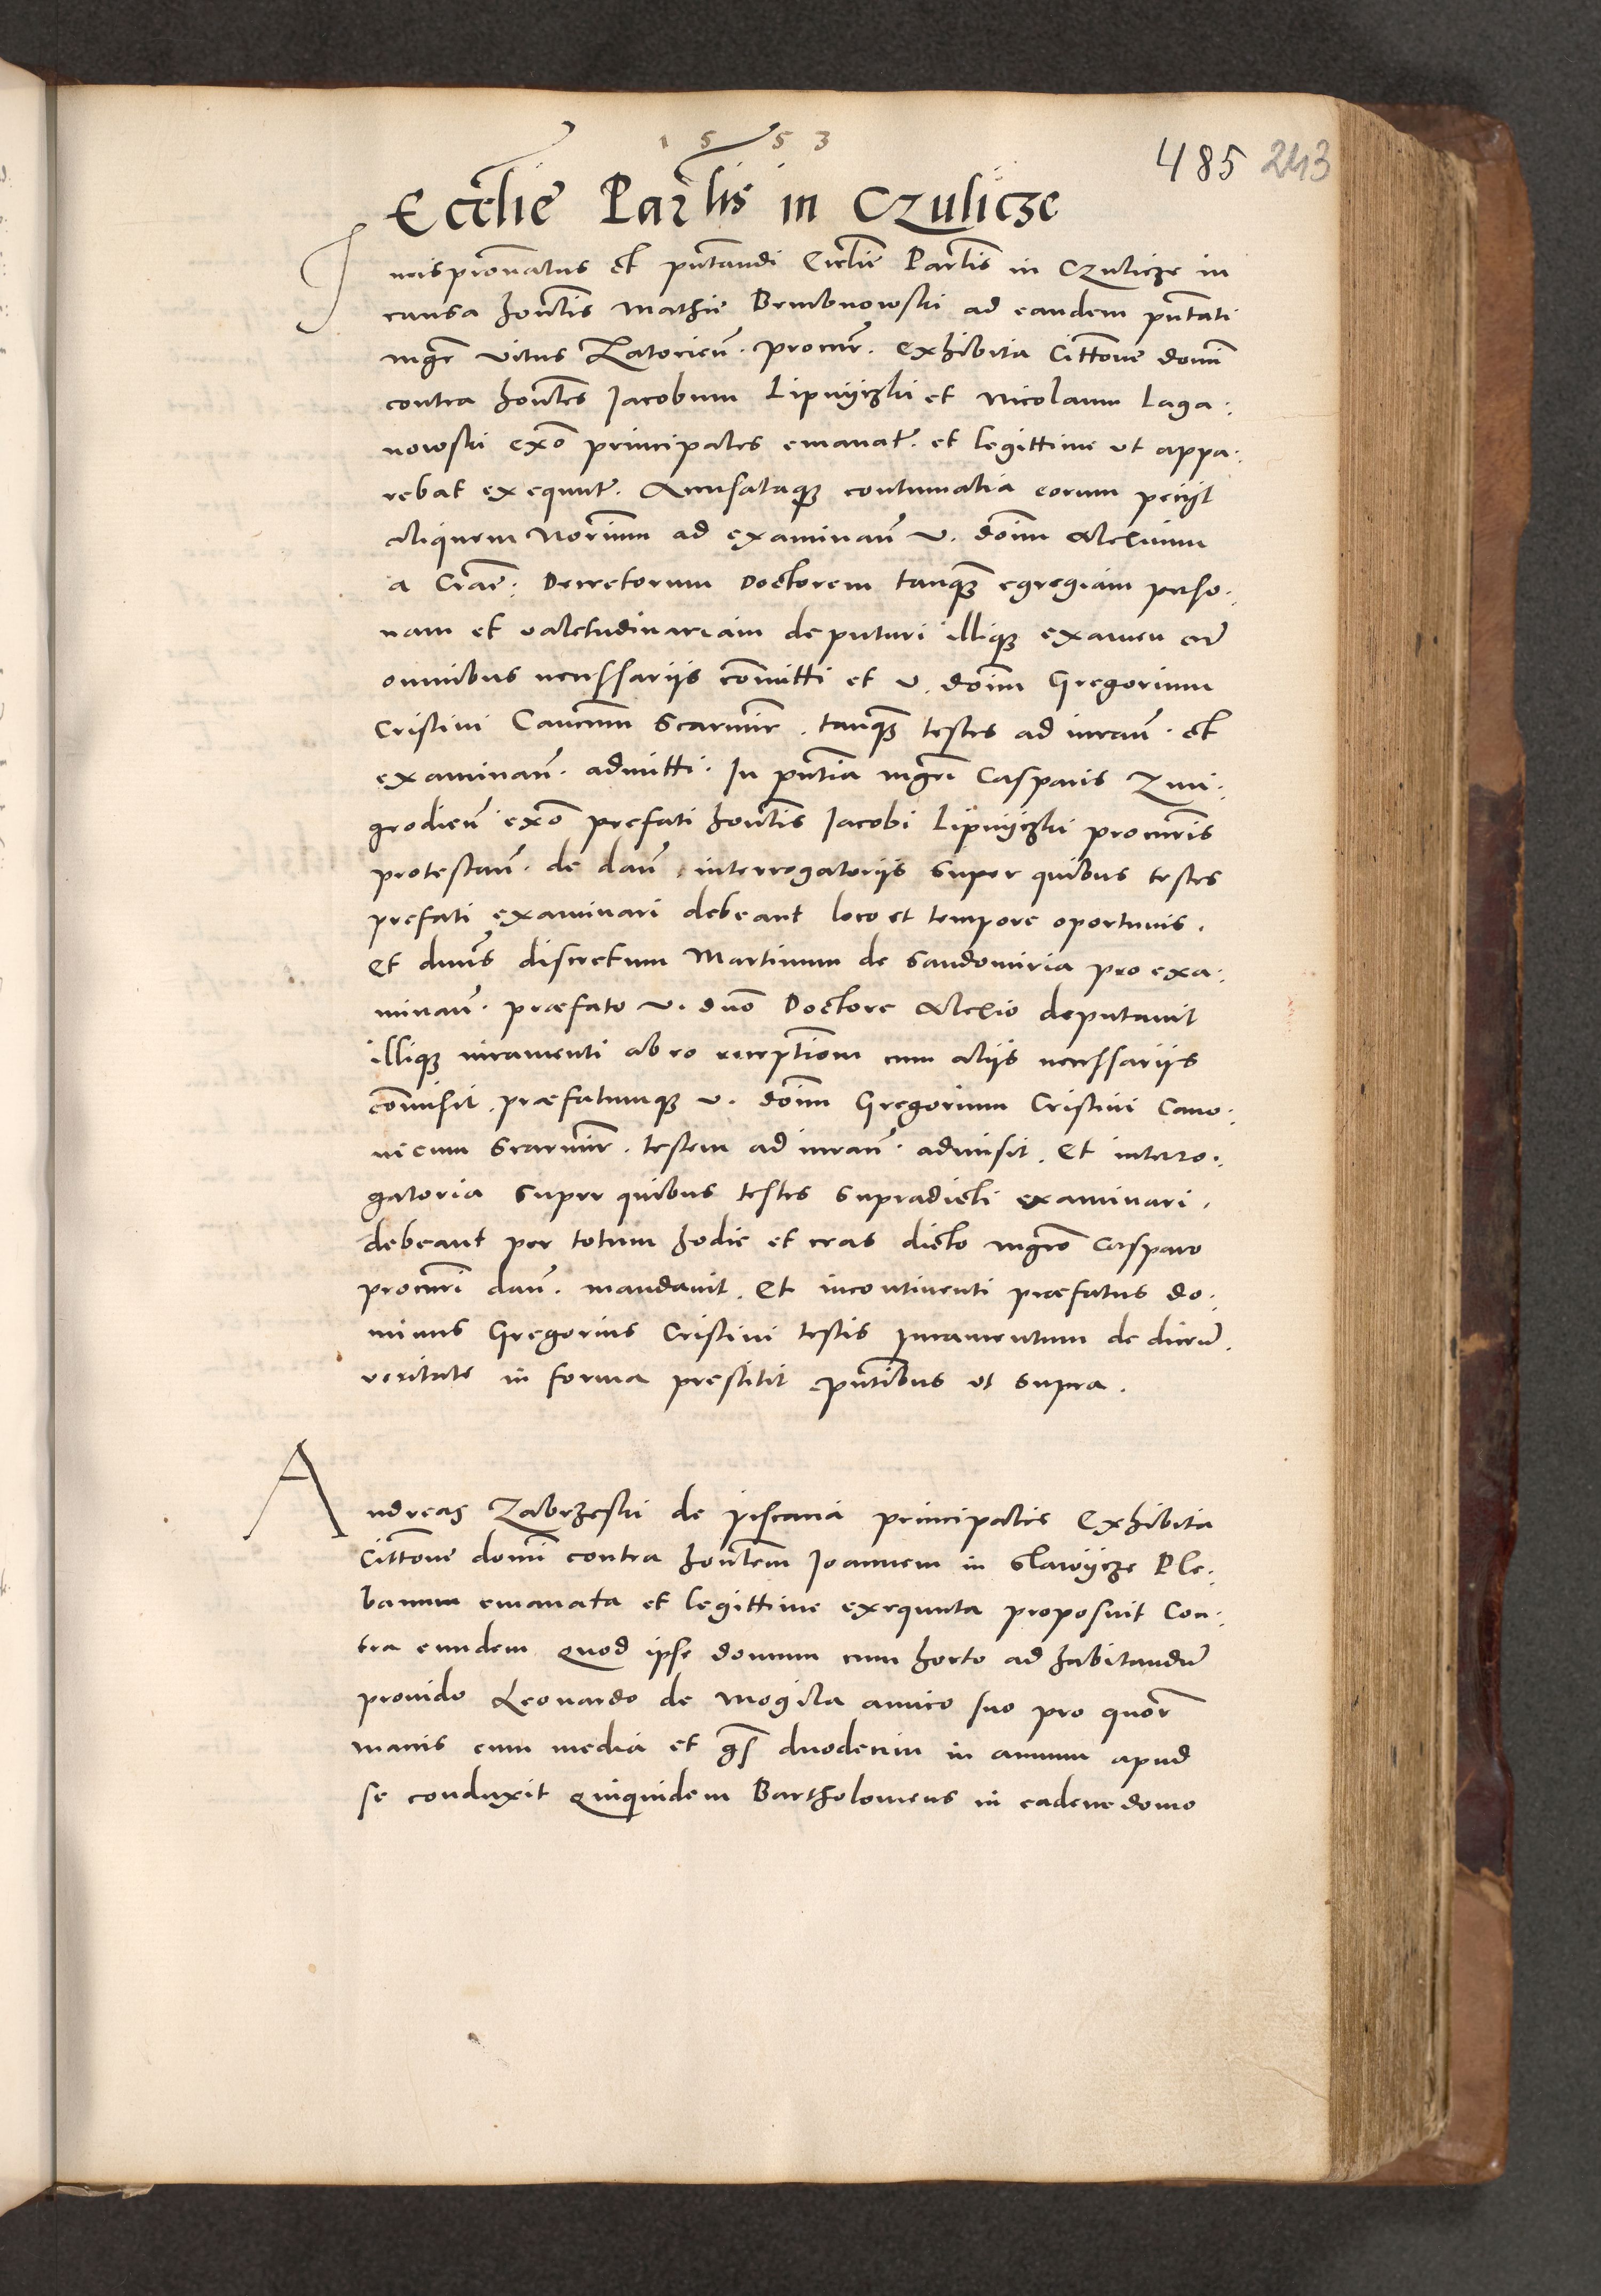 1553
485 243
Ecclie Parlis in Czulicze
Iurispronatus et pntandi Ecclie Parlis in Czulicze in
causa honlis Mathie Brmbnowski ad eandem pntati
mgr Vitus Zatoricen. procur. exhibita Cittone domi
contra honles Iacobum Lipnyczki et Nicolaum Laga
nowski exo principales emanat. et legittime ut appa
rebat exequut. Accusataque contumatia eorum petyt
aliquem Norium ad examinan v. doim Alexium
a Crac. Decretorum Doctorem tanqz egregiam perso
nam et valetudinariam deputari illique examen cu
omnibus necessariis comitti et v. doim Gregorium
Cristini Cancum Scarmir. tanqz testes ad iuran. et
examinan. admitti. In pntia mgri Casparis Zmi
grodien exo prefati honlis Iacobi Lipnyczki procuris
protestan. de dan. interrogatoriis super quibus testes
prefati examinari debeant loco et tempore oportunis.
Et dnus discretum Martinum de Sandomiria pro exa
minan. præfato v. dno Doctore Alexio deputavit
illique iuramenti ab eo receptionem cum aliis necessariis
comisit. præfatumque v. doim Gregorium Cristini Cano
nicum Scarmir. testem ad iuran. admisit. Et interro
gatoria super quibus testes supradicti examinari.
debeant per totum hodie et cras dicto mgro Casparo
procuri dan. mandavit. Et incontinenti præfatus do
minus Gregorius Cristini testis Iuramentum de dicen.
veritate in forma prestitit pntibus ut supra.
Andreas Zabrzeski de piscaria principalis Exhibita
Cittone domi contra honlem Ioannem in Slawycze Ple
banum emanata et legittime exequuta proposuit Con
tra eundem Quod ipse domum cum horto ad habitandu
provido Leonardo de Mogila amico suo pro quor
marcis cum media et gs duodecim in annum apud
se conduxit Quiquidem Bartholomeus in eadem domo